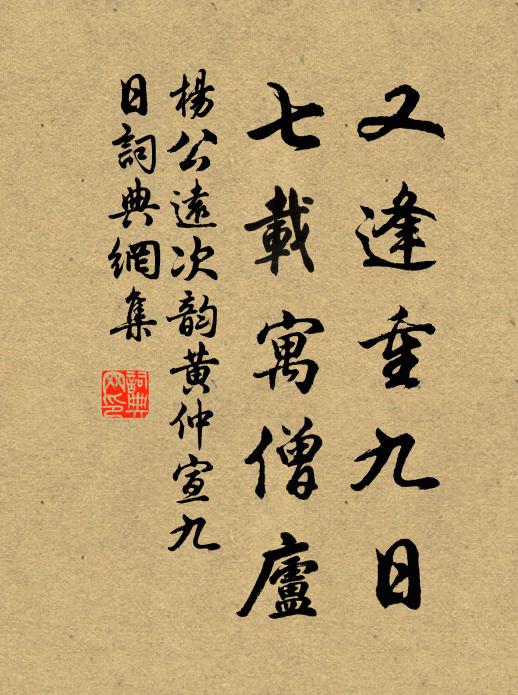 又逢重九日
七載寓僧廬
楊公遠次韵黄仲宣九
日詞典網集
詞典
网印